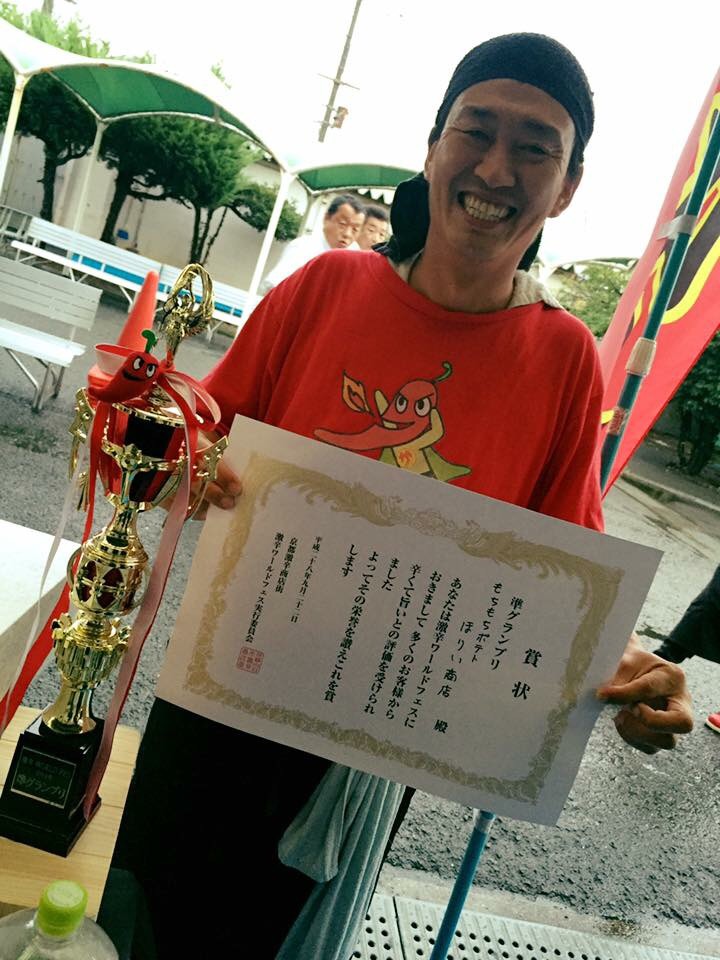 賞状
準グランプリ
もちもちポテト
ほりい商店 殿
あなたは激辛ワールドフェスに
おきまして多くのお客様から
辛くて旨いとの評価を受けられ
ました
よってその栄誉を讃えこれを賞
します
平成二十八年九月二十二日
京都激辛商店街
激辛ワールドフェス実行委員会
準グランプリ